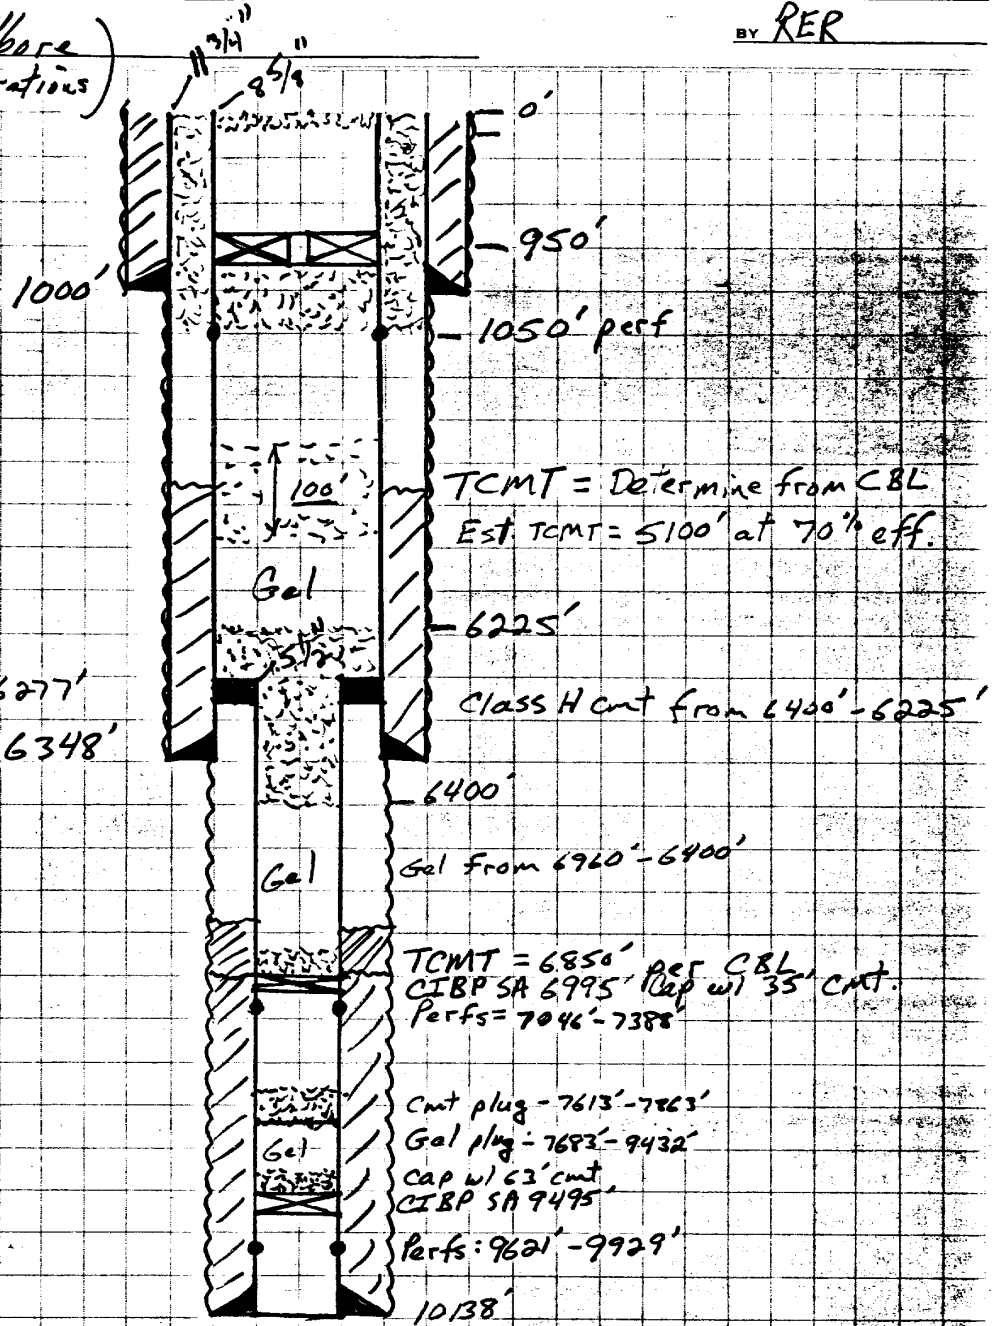 BY RER
11 3/4"
8 5/8"
0'
950'
1000'
1050' perf
TCMT = Determine from CBL
100'
Est TCMT = 5100' at 70% eff.
Gel
6225'
5 1/2"
6277'
Class H cmt from 6400'-6225'
6348'
6400'
Gel
Gel from 6960'-6400'
TCMT = 6850' per CBL
CIBP SA 6995' Cap w/ 35' cmt.
Perfs = 7046'-7388'
Cmt plug - 7613'-7863'
Gel plug - 7683'-9432'
Gel
Cap w/ 63' cmt
CIBP SA 9495'
Perfs: 9621'-9929'
10138'